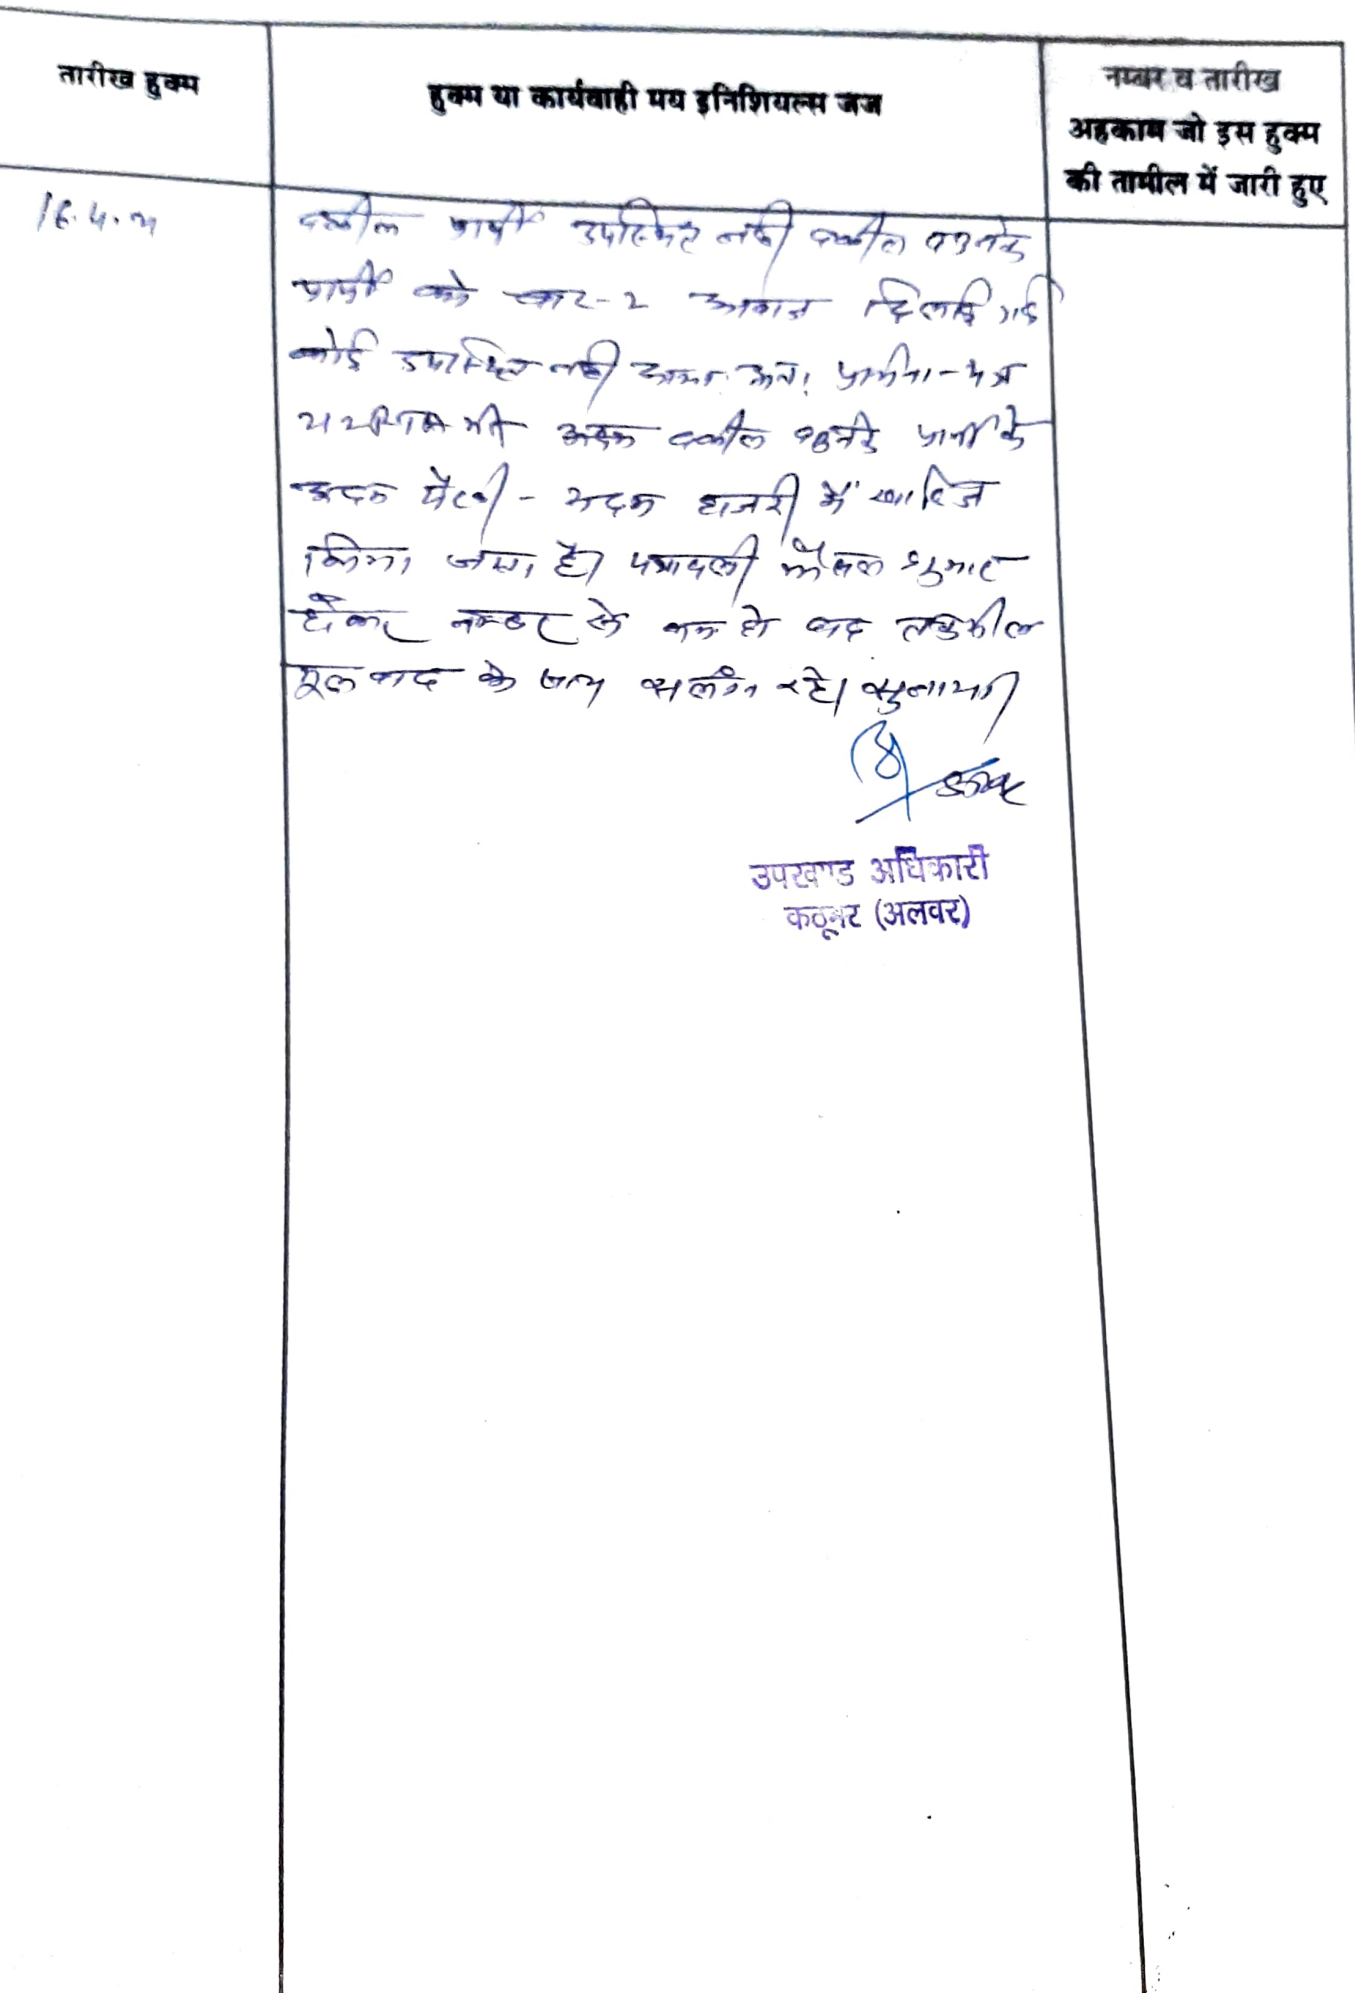 तारीख हुक्म
हुक्म या कार्यवाही मय इनिशियल्स जज
नम्बर व तारीख
अहकाम जो इस हुक्म
की तामील में जारी हुए
वकील प्रार्थी उपस्थित नहीं वकील
प्रार्थी को बार-2 आवाज दिलाई गई
कोई उपस्थित नहीं आया अतः प्रार्थना-पत्र
वकील प्रार्थी के
अदम पैरवी - अदम हाजरी में खारिज
किया जाता है। पत्रावली फैसल शुमार
होकर नम्बर से कम हो बाद तकमील
मूल वाद के साथ संलग्न रहे। सुनाया
उपखण्ड अधिकारी
कठूमर (अलवर)